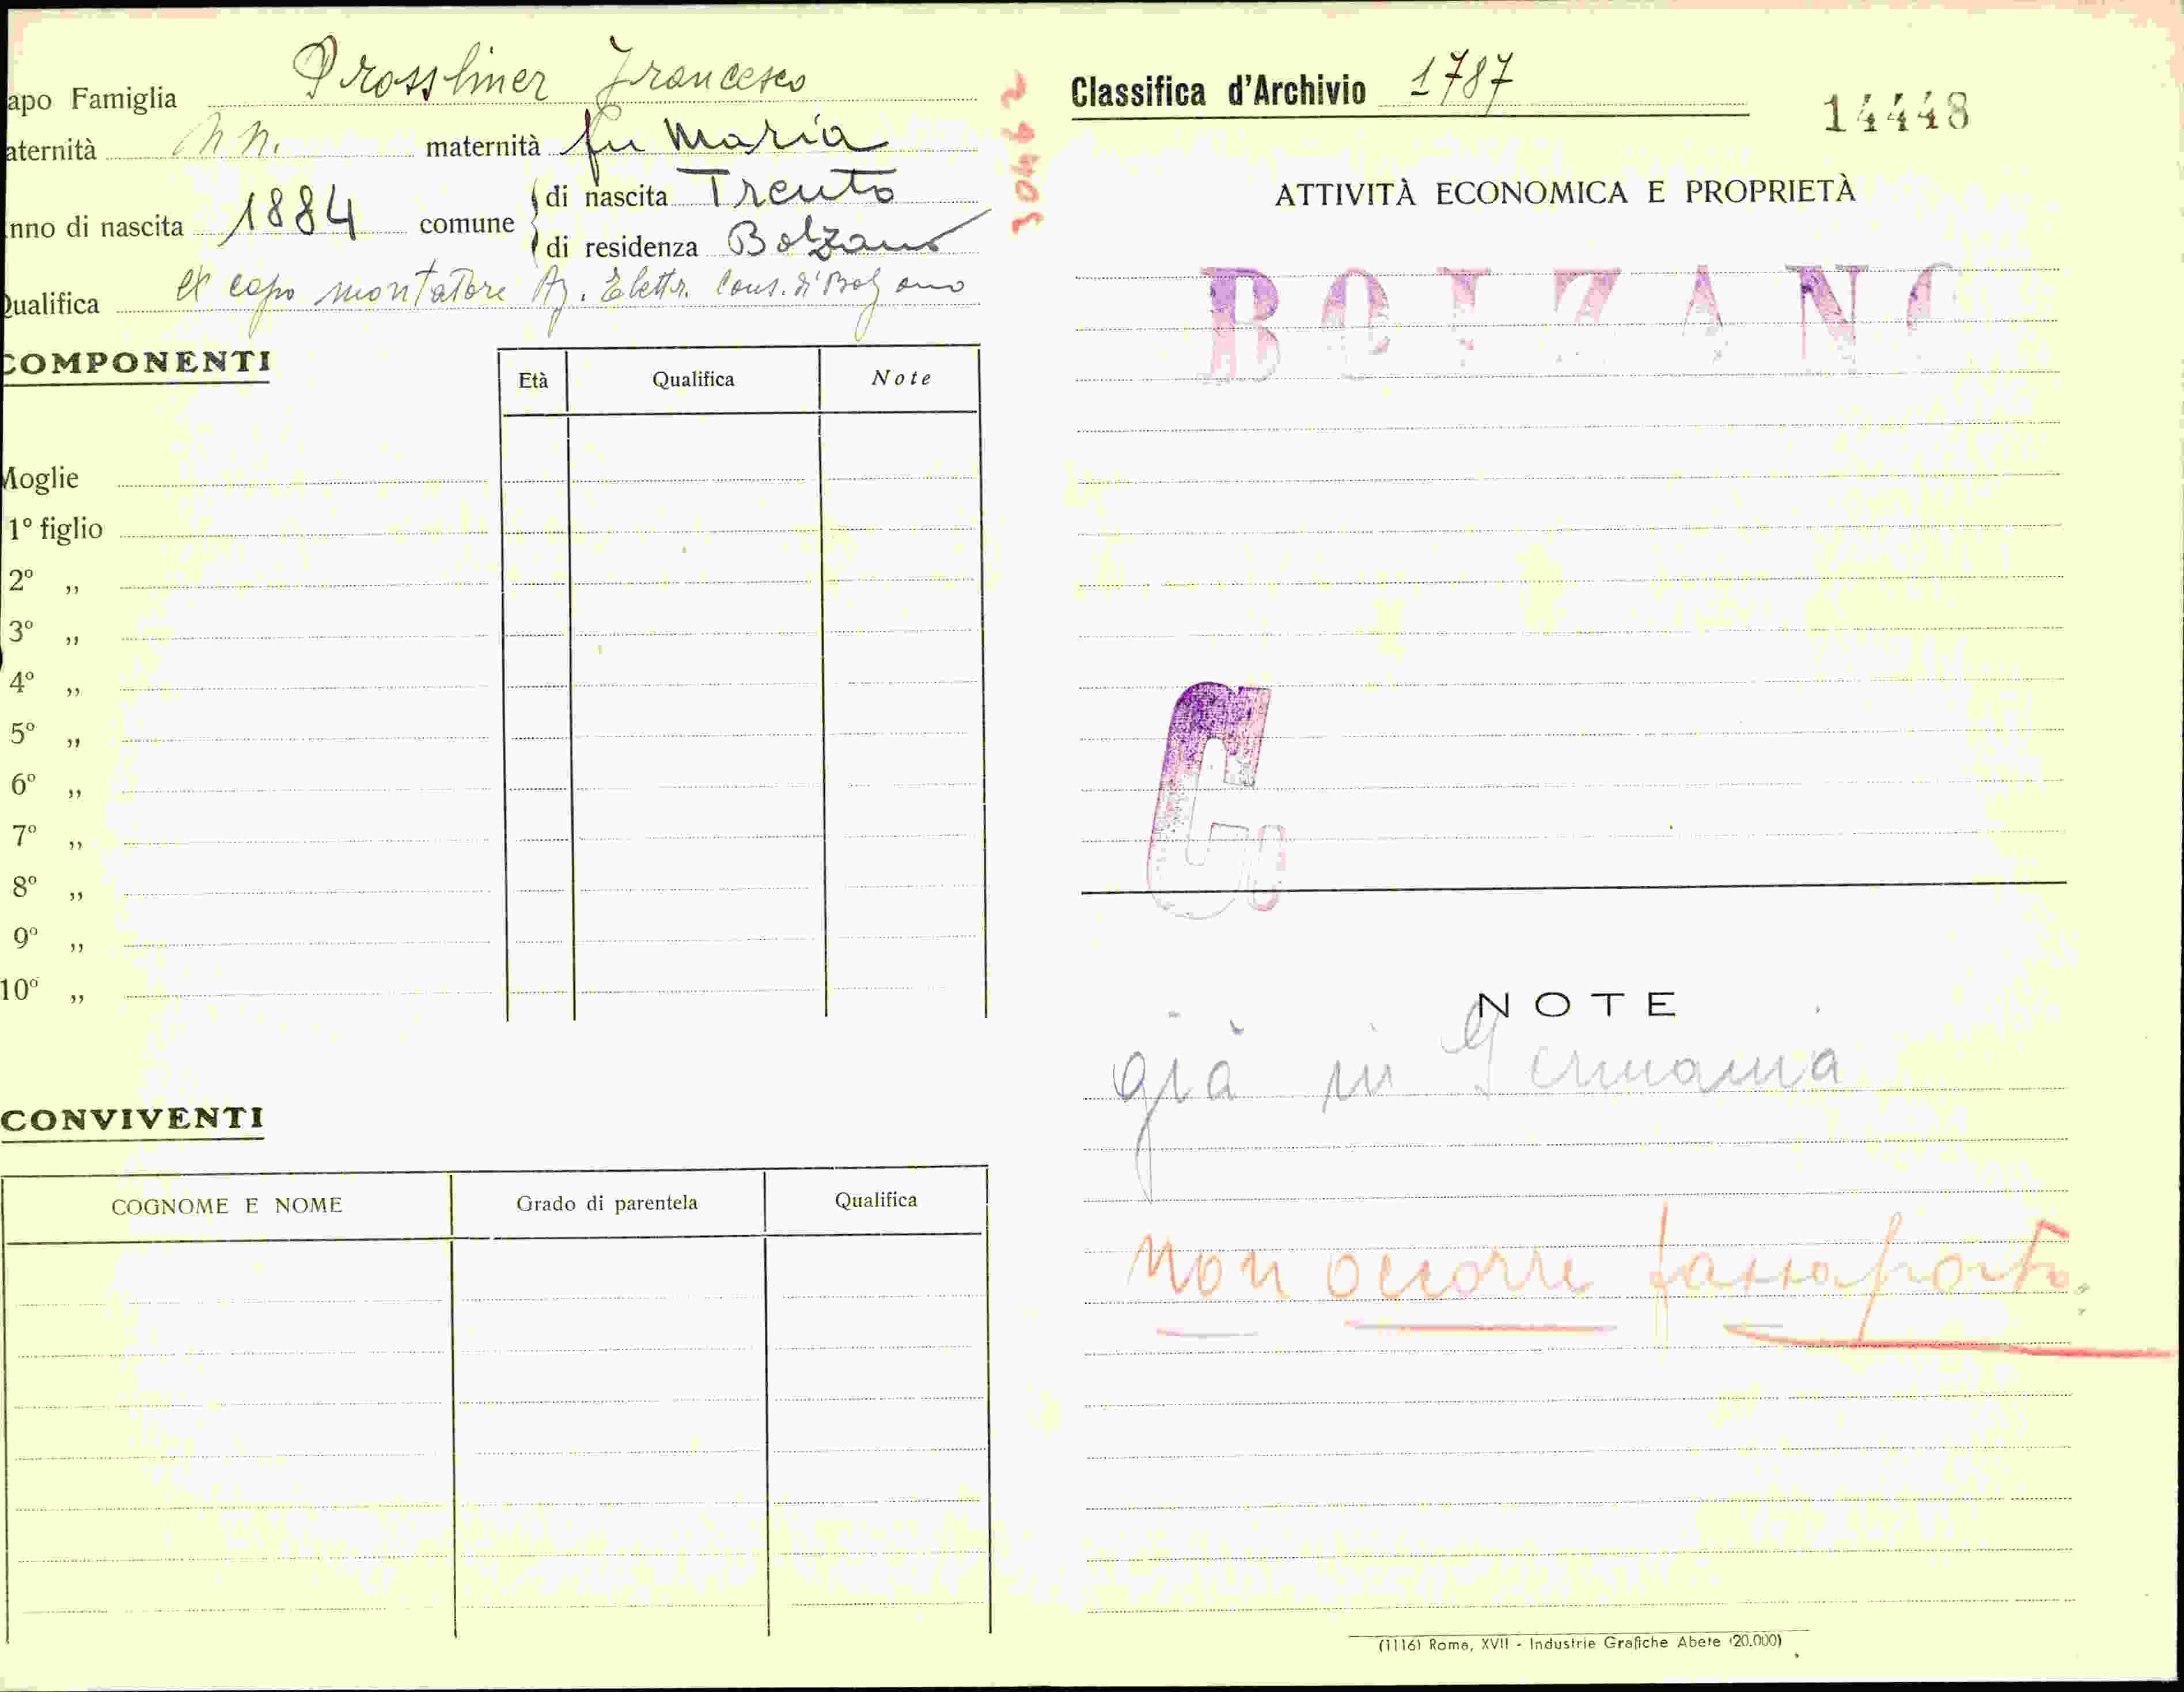 apo Famiglia Prossliner Francesco
aternità N.N. maternità fu Maria
nno di nascita 1884 comune di nascita Trento
di residenza Bolzano
Qualifica ex capo montatore Az. Elettr. Cons. di Bolzano
COMPONENTI
Età Qualifica Note
Moglie
1° figlio
2° ,,
3° ,,
4° ,,
5° ,,
6° ,,
7° ,,
8° ,,
9° ,,
10° ,,
CONVIVENTI
COGNOME E NOME Grado di parentela Qualifica
Classifica d'Archivio 1787
14448
ATTIVITÀ ECONOMICA E PROPRIETÀ
BOLZANO
G
NOTE
già in Germania
non occorre passaporto
(1116) Roma, XVII - Industrie Grafiche Abete (20.000)